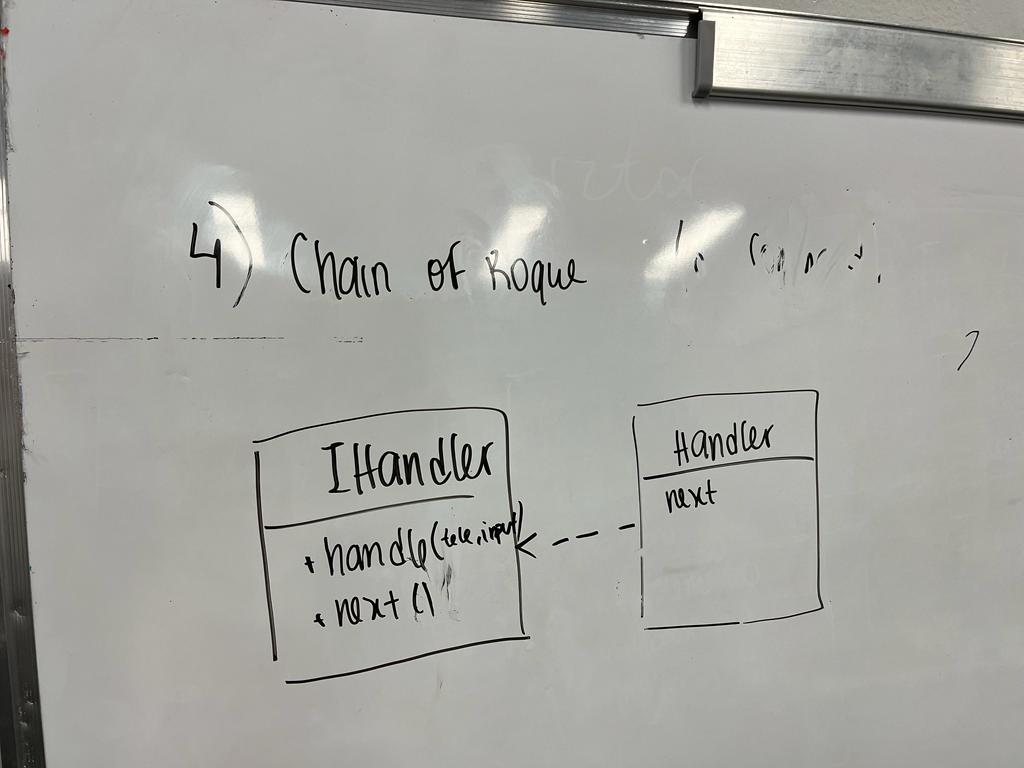 4) Chain of Roque
IHandler
+ handle(tele, input)
+ next()
Handler
next